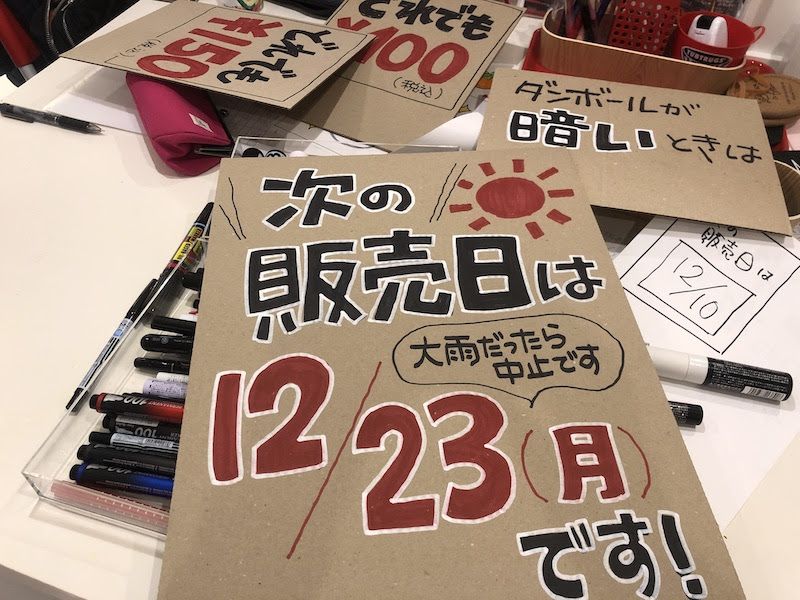 次の
販売日は
大雨だったら
中止です
12/23(月)
です!
どれでも
¥150
(税込)
どれでも
¥100
(税込)
ダンボールが
暗いときは
販売日は
12/10
TUBTRUGS